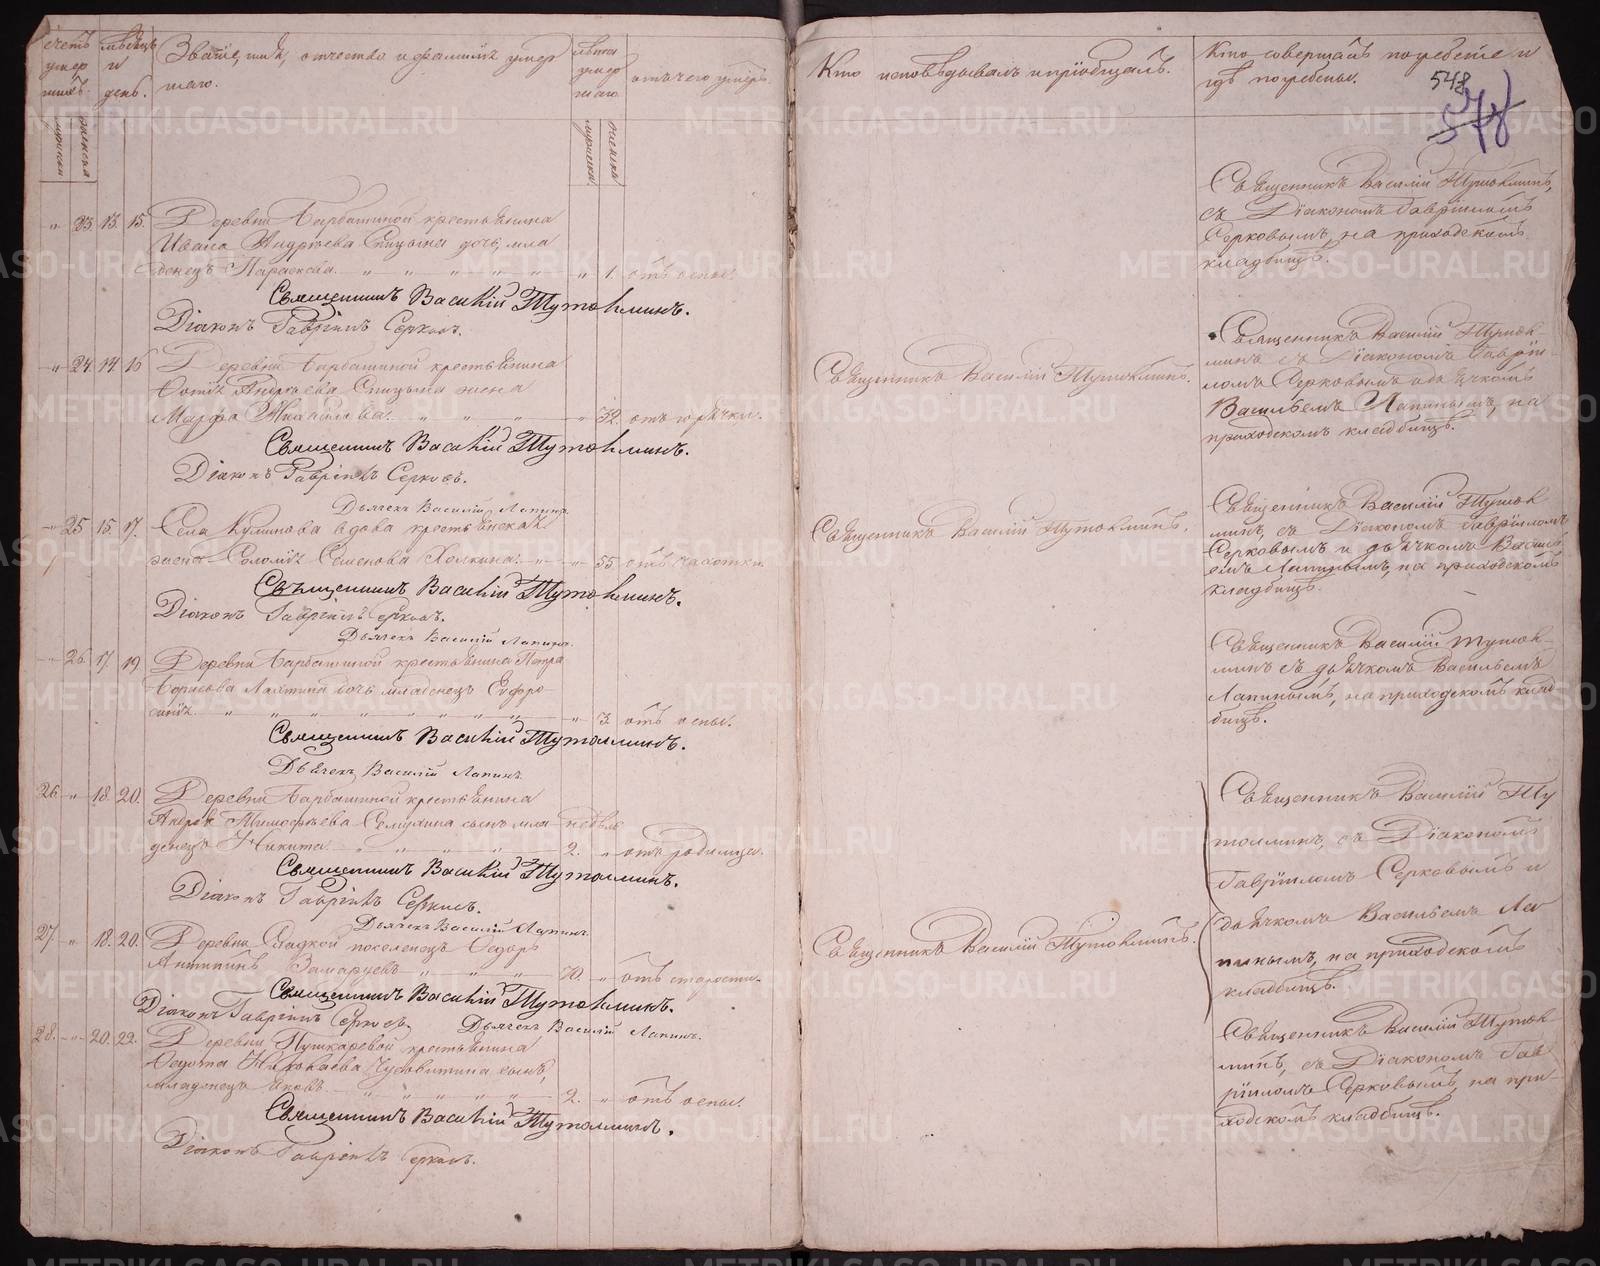 счетъ умершихъ.
мѣсяцъ и день.
Званіе, имя, отчество и фамилія умершаго.
лѣта умершаго
отъ чего умеръ.
Кто исповѣдывалъ и пріобщалъ.
Кто совершалъ погребеніе и гдѣ погребены.
548
578
мужеска
женска
мужеска
женска
" 23. 13. 15. Деревни Барбашиной крестьянина
Ивана Андреева Спицына дочь, мла
денецъ Параскева. " " " " " " 1. отъ оспы.
Священникъ Василій Тутолминъ.
Діаконъ Гавріилъ Серковъ.
Священникъ Василій Тутолминъ,
съ Діакономъ Гавріиломъ
Серковымъ, на приходскомъ
кладбищѣ.
" 24. 14. 16 Деревни Барбашиной крестьянина
Андреева Спицына жена
Марфа Михайлова. " " " " 32. отъ горячки.
Священникъ Василій Тутолминъ.
Діаконъ Гавріилъ Серковъ.
Дьячекъ Василій Лапинъ.
Священникъ Василій Тутолминъ.
Священникъ Василій Тутол-
минъ съ Діакономъ Гаврі-
ломъ Серковымъ и дьячкомъ
Васильемъ Лапинымъ, на
приходскомъ кладбищѣ.
" 25 15. 17. Села вдова крестьянская
жена Семенова Холкина. " " 55 отъ чахотки.
Священникъ Василій Тутолминъ.
Діаконъ Гавріилъ Серковъ.
Дьячекъ Василій Лапинъ.
Священникъ Василій Тутолминъ.
Священникъ Василій Тутол
минъ, съ Діакономъ Гавріиломъ
Серковымъ и дьячкомъ Василь
емъ Лапинымъ, на приходскомъ
кладбищѣ.
" 26. 17. 19. Деревни Барбашиной крестьянина Петра
Борисова Лаптина дочь младенецъ Евфро-
синія. " " " " " " " " 3. отъ оспы.
Священникъ Василій Тутолминъ.
Дьячекъ Василій Лапинъ.
Священникъ Василій Тутол-
минъ съ дьячкомъ Васильемъ
Лапинымъ, на приходскомъ клад
бищѣ.
26. " 18. 20. Деревни Барбашиной крестьянина
Андрея Тимофеева сынъ мла недѣль
денецъ Никита. " " " " 2. " отъ родимца.
Священникъ Василій Тутолминъ.
Діаконъ Гавріилъ Серковъ.
Дьячекъ Василій Лапинъ.
27. " 18. 20. Деревни Гладкой поселенецъ Ѳедоръ
Антипинъ " " " 70. " отъ старости.
Священникъ Василій Тутолминъ.
Діаконъ Гавріилъ Серковъ. Дьячекъ Василій Лапинъ.
Священникъ Василій Тутолминъ.
Священникъ Василій Ту
толминъ, съ Діакономъ
Гавріиломъ Серковымъ и
дьячкомъ Васильемъ Ла
пинымъ, на приходскомъ
кладбищѣ.
28. " 20. 22. Деревни Пушкаревой крестьянина
Ѳедота сынъ,
младенецъ Яковъ. " " " " " 2. " отъ оспы.
Священникъ Василій Тутолминъ.
Діаконъ Гавріилъ Серковъ.
Священникъ Василій Тутол
минъ, съ Діакономъ Гав
ріиломъ Серковымъ, на при-
ходскомъ кладбищѣ.
METRIKI.GASO-URAL.RU